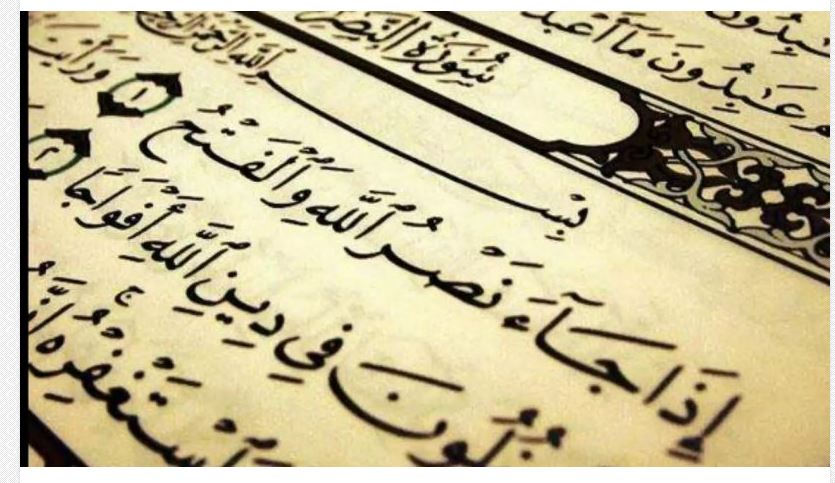 عَـٰبِدُونَ
عَـٰبِدُونَ مَآ أَعْبُدُ
سُورَةُ النَّصْرِ
بِسْمِ ٱللَّهِ ٱلرَّحْمَـٰنِ ٱلرَّحِيمِ
إِذَا جَآءَ نَصْرُ ٱللَّهِ وَٱلْفَتْحُ ١ وَرَأَيْتَ
فِى دِينِ ٱللَّهِ أَفْوَاجًا ٢
وَٱسْتَغْفِرْهُ ۚ